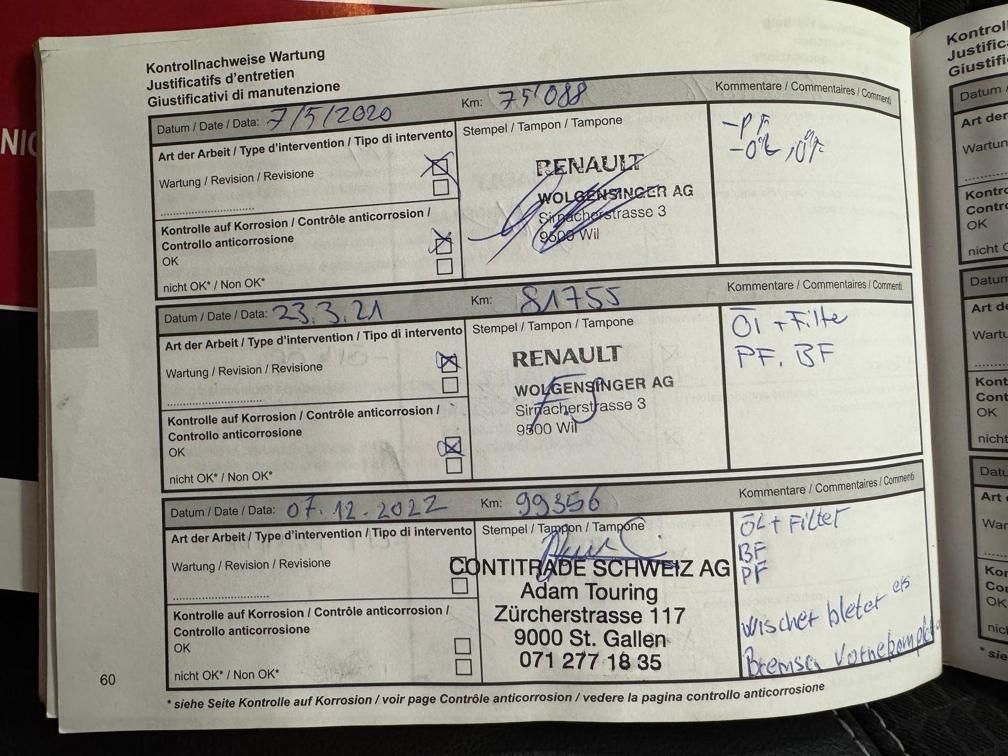 Kontrollnachweise Wartung
Justificatifs d'entretien
Giustificativi di manutenzione
Datum / Date / Data: 7/5/2020 Km: 75'088 Kommentare / Commentaires / Commenti
Art der Arbeit / Type d'intervention / Tipo di intervento Stempel / Tampon / Tampone
- PF
Wartung / Revision / Revisione
RENAULT
WOLGENSINGER AG
Sirnacherstrasse 3
9500 Wil
Kontrolle auf Korrosion / Contrôle anticorrosion /
Controllo anticorrosione
OK
nicht OK* / Non OK*
Datum / Date / Data: 23.3.21 Km: 81755 Kommentare / Commentaires / Commenti
Art der Arbeit / Type d'intervention / Tipo di intervento Stempel / Tampon / Tampone
Öl + Filte
PF, BF
Wartung / Revision / Revisione
RENAULT
WOLGENSINGER AG
Sirnacherstrasse 3
9500 Wil
Kontrolle auf Korrosion / Contrôle anticorrosion /
Controllo anticorrosione
OK
nicht OK* / Non OK*
Datum / Date / Data: 07.12.2022 Km: 99356 Kommentare / Commentaires / Commenti
Art der Arbeit / Type d'intervention / Tipo di intervento Stempel / Tampon / Tampone
ÖL + Filter
BF
PF
Wischer bleter ers
Bremsen vorne komplet
Wartung / Revision / Revisione
CONTITRADE SCHWEIZ AG
Adam Touring
Zürcherstrasse 117
9000 St. Gallen
071 277 18 35
Kontrolle auf Korrosion / Contrôle anticorrosion /
Controllo anticorrosione
OK
nicht OK* / Non OK*
60
* siehe Seite Kontrolle auf Korrosion / voir page Contrôle anticorrosion / vedere la pagina controllo anticorrosione